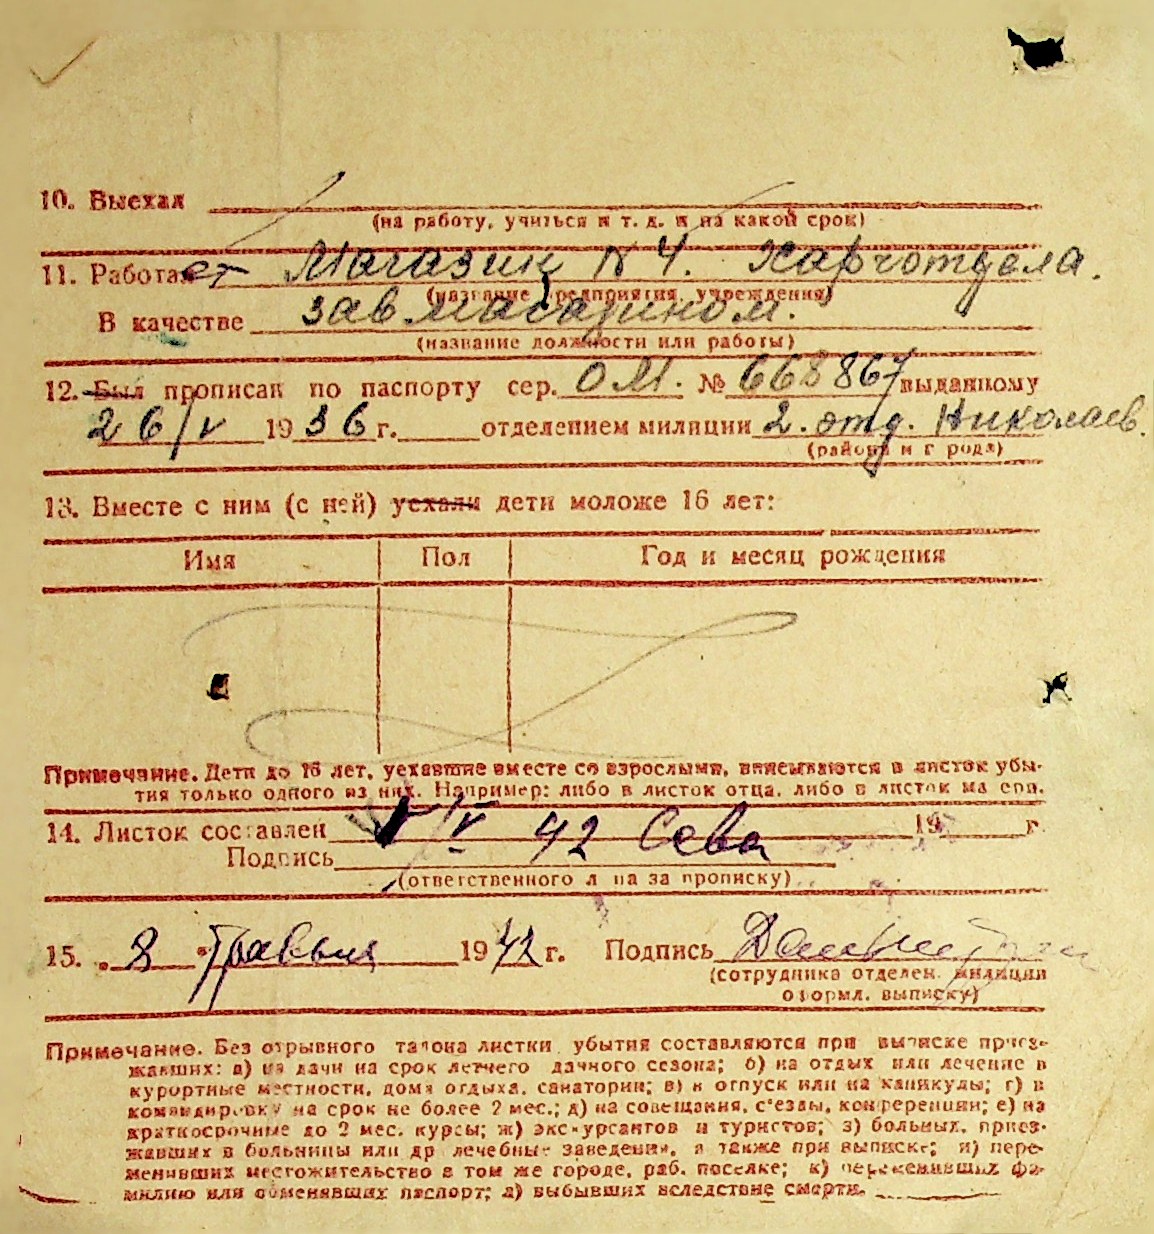 10. Выехал
(на работу, учиться и т. д. и на какой срок)
11. Работает Магазин N 4. Харчотдела.
(название предприятия, учреждения)
В качестве завмагазином.
(название должности или работы)
12. Был прописан по паспорту сер. ОМ. № 668867 выданному
26/V 1936 г. отделением милиции 2. отд. Николаев.
(района и города)
13. Вместе с ним (с ней) уехали дети моложе 16 лет:
Имя Пол Год и месяц рождения
Примечание. Дети до 16 лет, уехавшие вместе со взрослыми, вписываются в листок убы-
тия только одного из них. Например: либо в листок отца, либо в листок матери.
14. Листок составлен /V 42 19 г.
Подпись
(ответственного лица за прописку)
15. „8 “ Травня 1942 г. Подпись
(сотрудника отделен. милиции
оформл. выписку)
Примечание. Без отрывного талона листки убытия составляются при выписке приез-
жавших: а) на дачи на срок летнего дачного сезона; б) на отдых или лечение в
курортные местности, дома отдыха, санатории; в) в отпуск или на каникулы; г) в
командировку на срок не более 2 мес.; д) на совещания, с'езды, конференции; е) на
краткосрочные до 2 мес. курсы; ж) экскурсантов и туристов; з) больных, приез-
жавших в больницы или др лечебные заведения, а также при выписке; и) пере-
менивших местожительство в том же городе, раб. поселке; к) переменивших фа-
милию или обменявших паспорт; л) выбывших вследствие смерти.